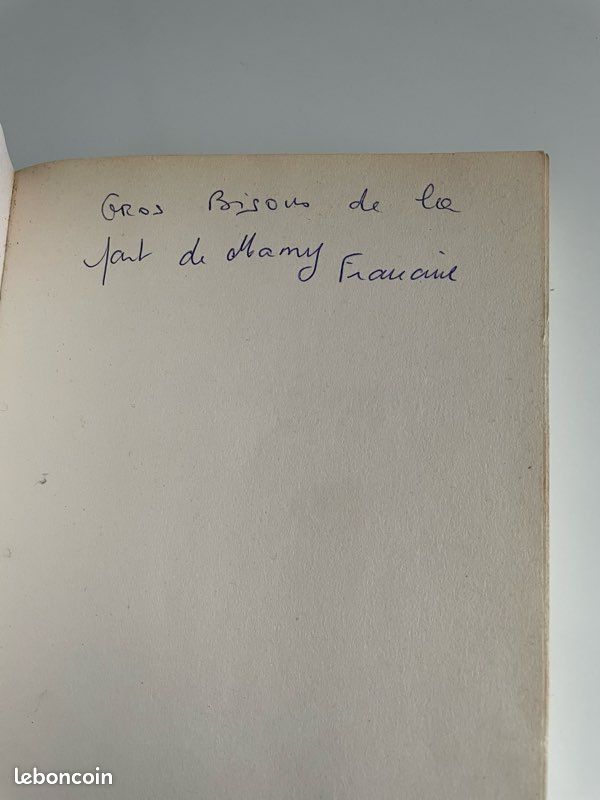 Gros Bisous de la
part de Mamy Francine
leboncoin